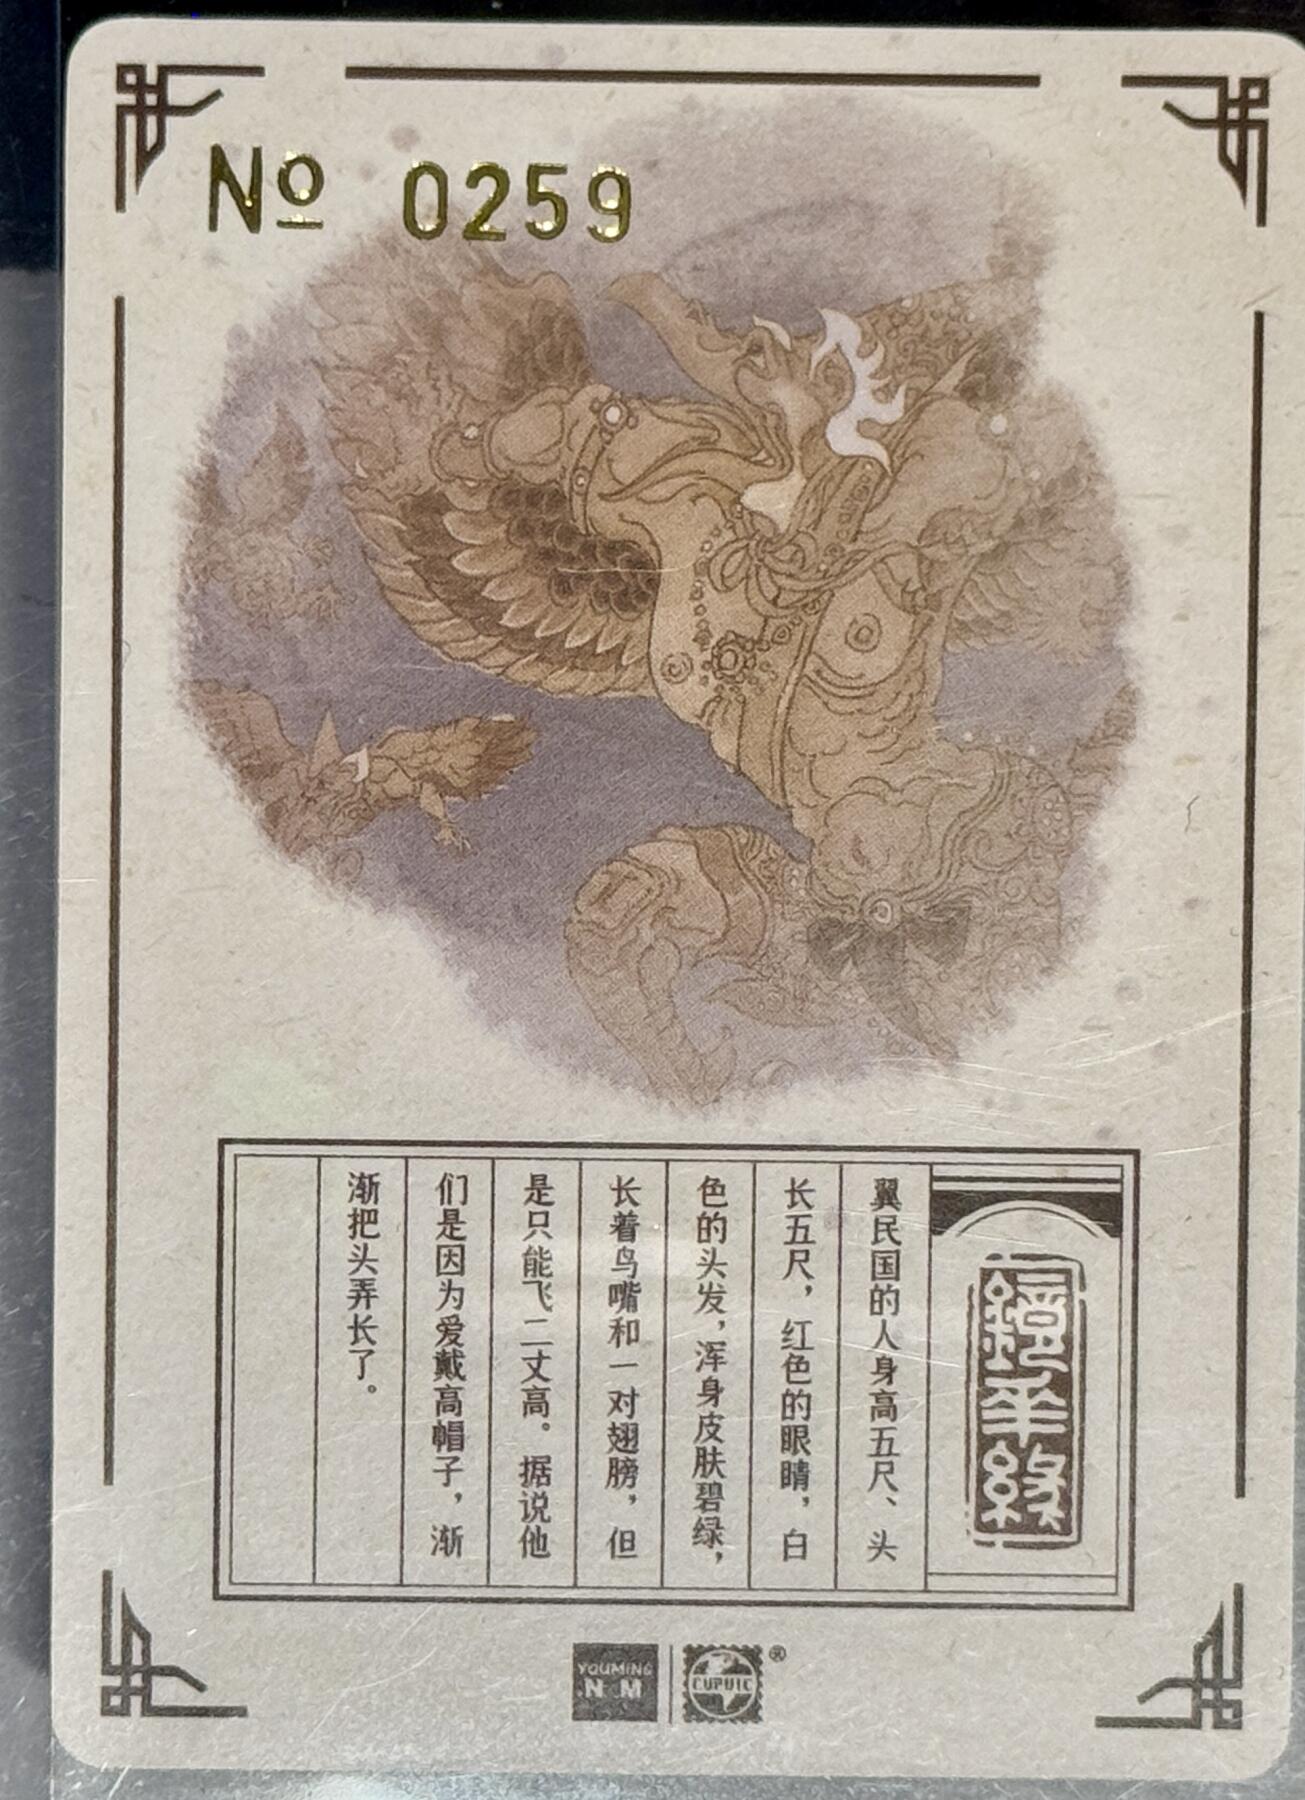 № 0259
鏡花緣
翼民国的人身高五尺、头
长五尺，红色的眼睛，白
色的头发，浑身皮肤碧绿，
长着鸟嘴和一对翅膀，但
是只能飞二丈高。据说他
们是因为爱戴高帽子，渐
渐把头弄长了。
YOUMING
.N M
®